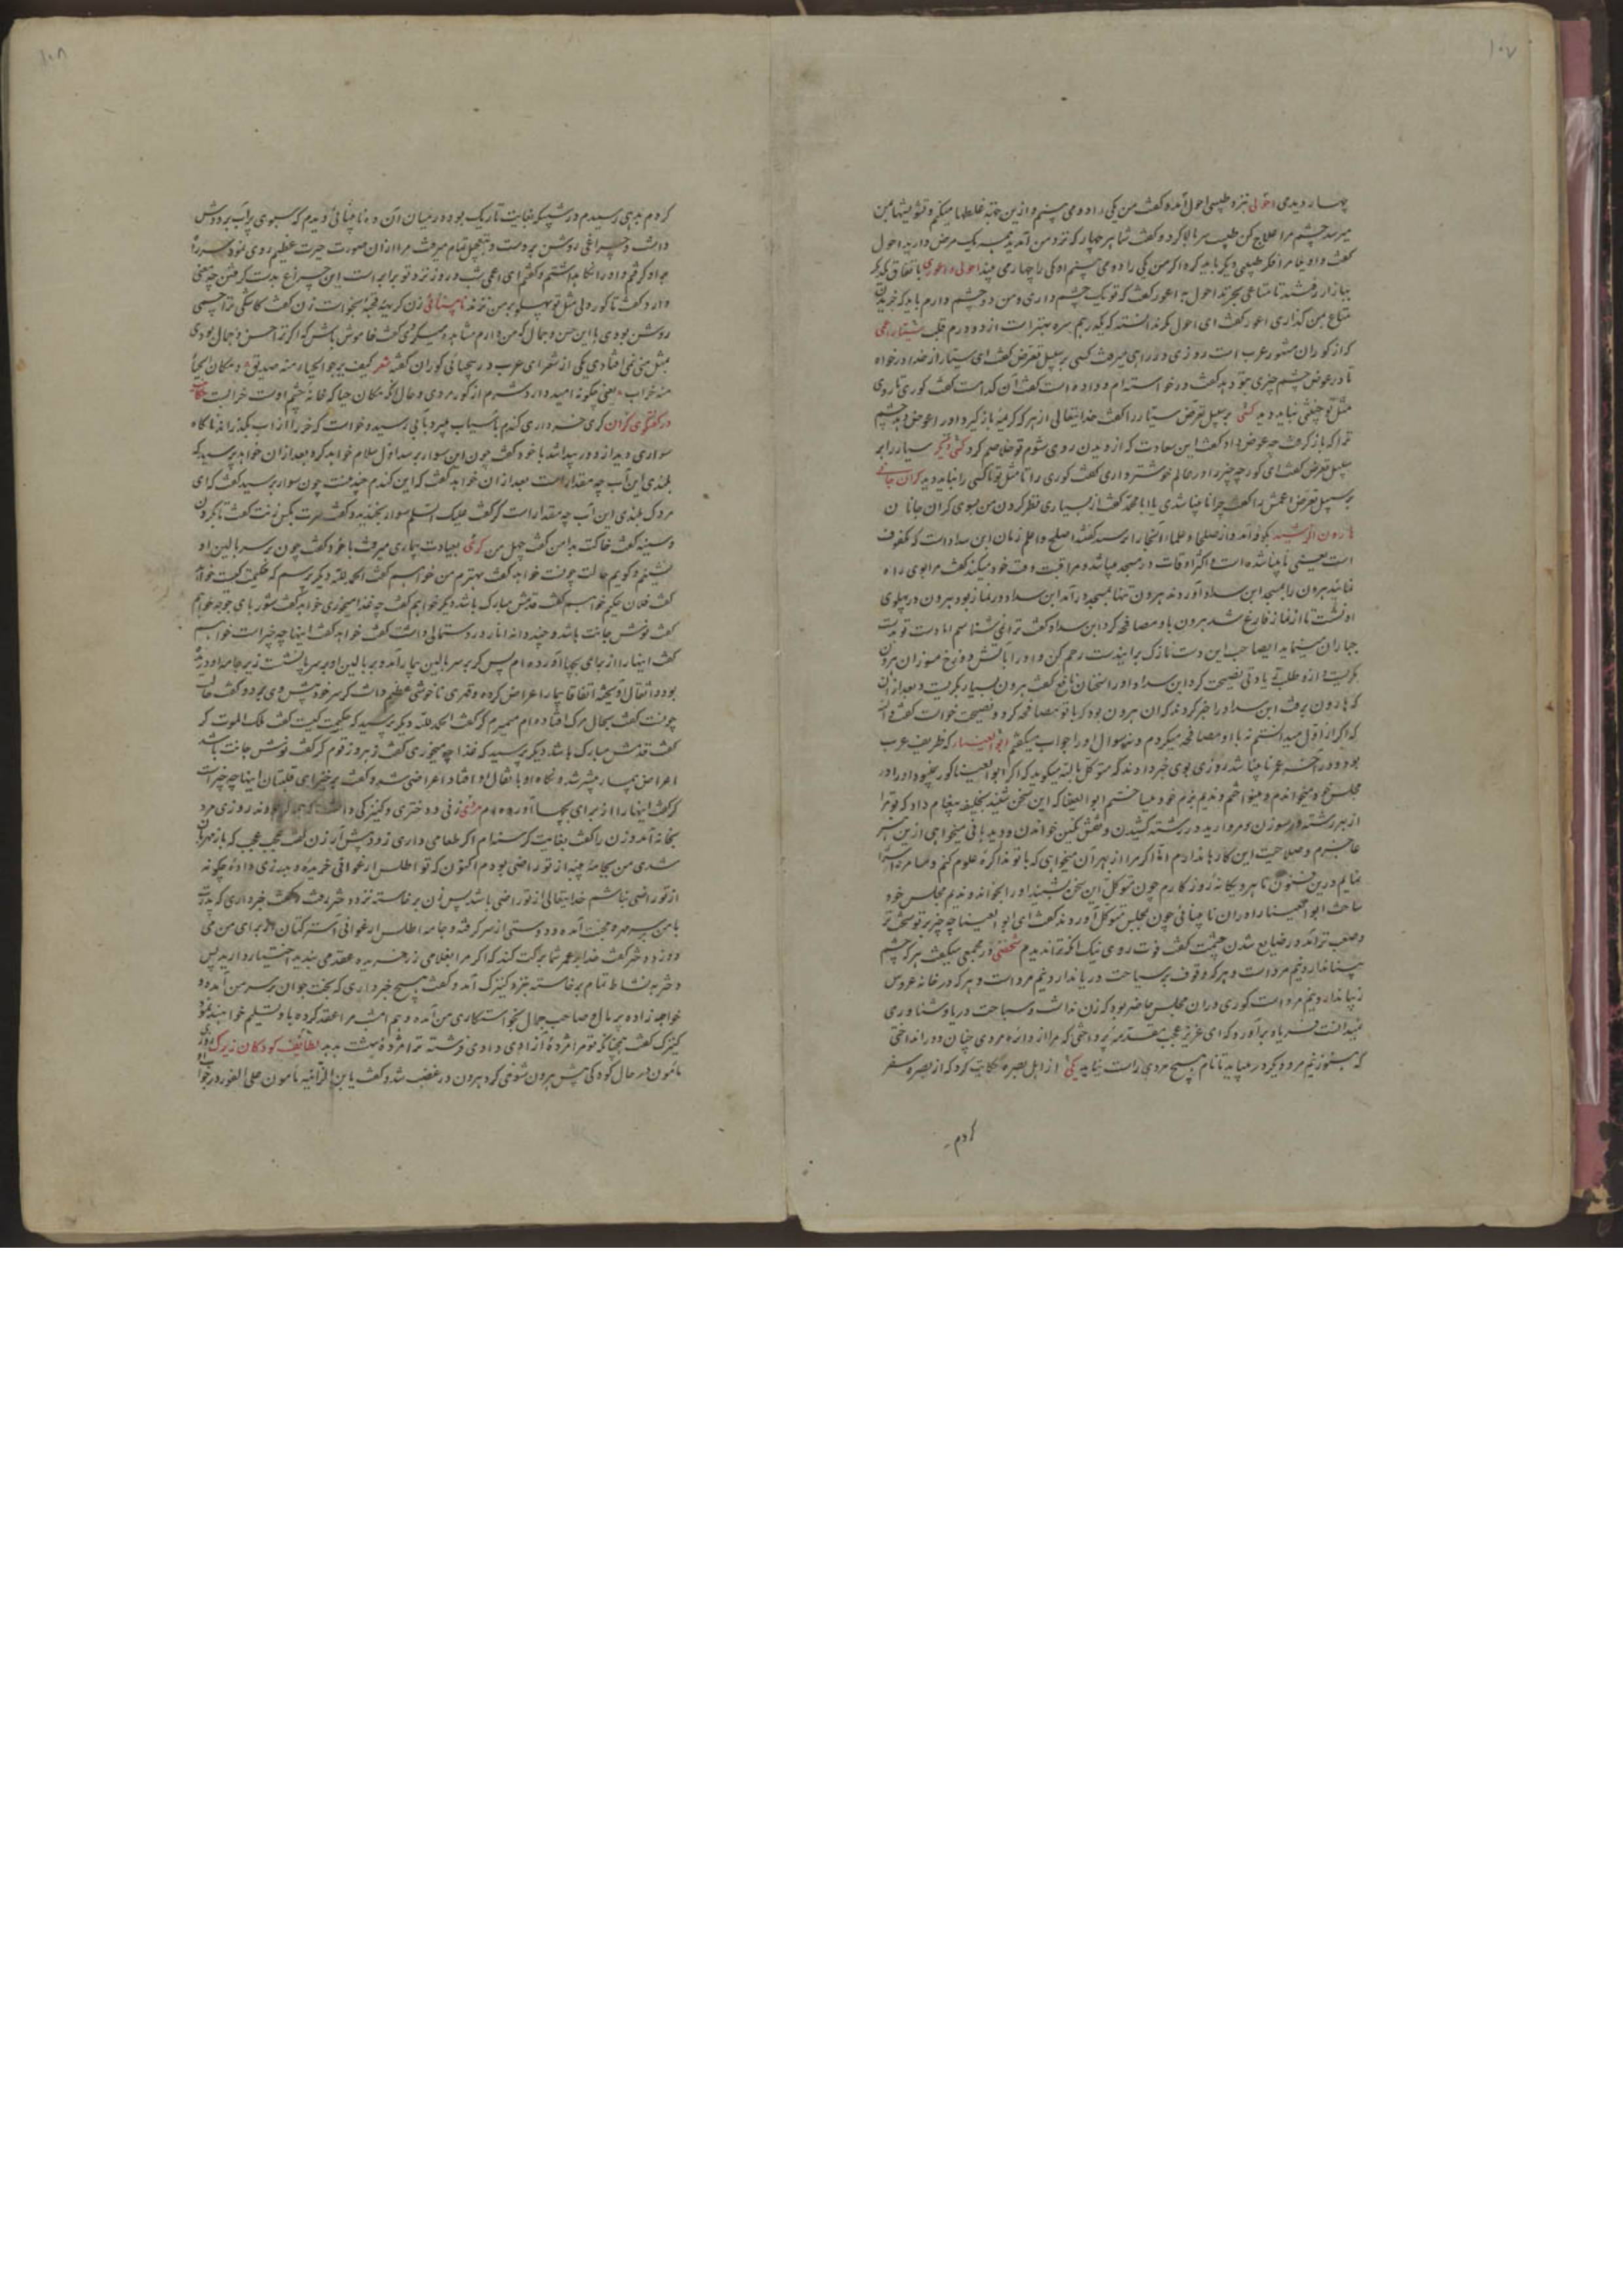 ۱۰۷
چهار دیدمی احولی نزد طبیبی احول آمد و کفت من یکی را دو می بینم و ازین جهة غلطها میکنم و تشویشها بمن
میرسد چشم مرا علاج کن طبیب سر بالا کرد و کفت شما هر چهار که نزد من آمدید همه یک مرض دارید احول
کفت داویغا مرا فکر طبیبی دیکر باید کرد اکر من یکی را دو می بینم او یکی را چهار می بیند احولی و اعوری باتفاق یکدیکر
ببازار رفتند تا متاعی بخرند احول با اعور کفت که تو یک چشم داری و من دو چشم دارم باید که خریدن
متاع بمن کذاری اعور کفت ای احول مکر ندانسته که یکدرهم سره بهتر است از دو درم قلب
که از کوران مشهور عرب است روزی در راهی میرفت کسی بر سبیل تعرض کفت ای سیار از خدا درخواه
تا در عوض چشم چیزی بتو دهد کفت درخواسته ام و داده است کفت آن کدامست کفت کوری تا روی
مثل تو نباید دید کسی بر سبیل تعرض را کفت خدایتعالی از هر که کریمه باز کیرد او را عوض دهد چشم
ترا که باز کرفت چه عوض داد کفت این سعادت که از دیدن روی شوم تو خلاصم کرد کسی دیکر سیار را بر
سبیل تعرض کفت ای کور چه چیز را در عالم خوشتر داری کفت کوری را تا مثل تو ناکسی را نباید دید کران جانی
بر سبیل تعرض اعمش را کفت چرا نابینا شدی یا ابا محمد کفت از بسیاری نظر کردن من بسوی کران جانان
هارون الرشید بکوفه آمد و از صلحا و علماء آنجا را پرسید کفتند اصلح و اعلم زمان ابن سداد است که مکفوف
است یعنی نابینا شده است و اکثر اوقات در مسجد میباشد و مراقبت وقت خود میکند کفت مرا بوی راه
نمائید هرون را بمسجد ابن سداد آوردند هرون تنها بمسجد درآمد ابن سداد در نماز بود هرون در پهلوی
او نشست تا از نماز فارغ شد هرون با او مصافحه کرد ابن سداد کفت ترا نمی شناسم اما دست تو بدست
جباران مینماید ایصاحب این دست نازک برایندست رحم کن و او را بآتش دوزخ مسوزان هرون
بکریست و از وی طلب زیادتی نصیحت کرد ابن سداد او را سخنان نافع کفت هرون بسیار بکریست و بعد از آن
که هارون برفت ابن سداد را خبر کردند که آن هرون بود که با تو مصافحه کرد و نصیحت خواست کفت والله
که اکر از اول میدانستم نه با او مصافحه میکردم و نه سوال او را جواب میکفتم ابو العیناء که ظریف عرب
بود و در آخر عمر نابینا شد روزی بوی خبر دادند که متوکل بالله میکوید که اکر ابو العینا کور نمیبود او را در
مجلس خود میخواندم و مینواختم و ندیم بزم خود میساختم ابو العینا که این سخن شنید بخلیفه پیغام داد که تو مرا
از بهر رشته در سوزن و مروارید در رشته کشیدن و نقش نکین خواندن و دیده بانی میخواهی ازین هنر
عاجزم و صلاحیت این کارها ندارم اما اکر مرا از بهر آن میخواهی که با تو مذاکره علوم کنم و مسامره
نمایم درین فنون ماهر و یکانه روز کارم چون متوکل این سخن بشنید او را بخواند و ندیم مجلس خود
ساخت ابو العینا را در آن نابینائی چون بمجلس متوکل آوردند کفت ای ابو العینا چه چیز بر تو سخت تر
و صعب تر آمد در ضایع شدن چشمت کفت فوت روی نیک آنکه ترا ندیدم شخصی در مجمعی میکفت هر که چشم
بینا ندارد نیم مرد است و هر که وقوف بر سباحت دریا ندارد نیم مرد است و هر که در خانه عروس
زیبا ندارد نیم مرد است کوری در آن مجلس حاضر بود که زن نداشت و سباحت دریا و شناوری
نمیدانست فریاد برآورد که ای عزیز عجب مقدمه پرداختی که مرا از دائره مردی چنان دور انداختی
که هنوز نیم مرد دیکر در میباید تا نام هیچ مردی راست نیاید یکی از اهل بصره حکایت کرد که از بصره سفر
کردم
۱۰۸
کردم بدهی رسیدم در شبیکه بغایت تاریک بود در میان آن ده نابینائی دیدم که سبوی پر آب بر دوش
داشت و چراغی روشن بر دست و بتعجیل تمام میرفت مرا از ان صورت حیرت عظیم روی نمود
او کرفتم و او را نکاه داشتم و کفتم ای اعمی شب و روز نزد تو برابر است این چراغ بدست کرفتن چه معنی
دارد کفت تا کور دلی مثل تو پهلو بر من نزند نابینائی زن کریه قبیحه بخواست زن کفت کاشکی ترا چشمی
روشن بودی تا این حسن و جمال که من دارم مشاهده میکردی کفت خاموش باش که اکر ترا حسن و جمال بودی
بمثل منی نمی افتادی یکی از شعرای عرب در بیحیائی کوران کفته شعر کیف یرجو الحیاء منه صدیق و مکان الحیاء
منه خراب یعنی چکونه امید دارد شرم از کور مردی و حال آنکه مکان حیا که خانه چشم اوست خرابست
در کفتکوی کران کری خرواری کندم بآسیاب میبرد بآبی رسید و خواست که خر را از آب بکذراند ناکاه
سواری دید از دور پیدا شد با خود کفت چون این سوار برسد اول سلام خواهد کرد بعد از ان خواهد پرسید که
بلندی این آب چه مقدار است بعد از ان خواهد کفت که این کندم چند منست چون سوار برسید کفت که ای
مردک بلندی این آب چه مقدار است کر کفت علیک السلم سوار بخندید و کفت کفت تا بکردن
و سینه کفت خاکت بدامن کفت چهل من کری بعیادت بیماری میرفت با خود کفت چون بر سر بالین او
نشینم و کویم حالت چونست خواهد کفت بهترم من خواهم کفت الحمد لله دیکر پرسم که حکیمت کیست خواهد
کفت فلان حکیم خواهم کفت قدمش مبارک باشد دیکر خواهم کفت چه غذا میخوری خواهد کفت شوربای جوجه خواهم
کفت نوش جانت باشد و چند دانه انار در دستمالی داشت کفت خواهد کفت اینها چه چیز است خواهم
کفت اینها را از برای بچها آورده ام پس کر بر سر بالین بیمار آمد و بر بالین او بر سر پا نشست زیر جامه او دریده
بود اتفاقا بیمار اعراض کرده و قدری ناخوشی عظیم داشت کر سر خود پیش وی برد و کفت حالت
چونست کفت بحال مرک افتاده ام میمیرم کر کفت الحمد لله دیکر پرسید که حکیمت کیست کفت ملک الموت کر
کفت قدمش مبارک باشد دیکر پرسید که غذا چه میخوری کفت زهر و زقوم کر کفت نوش جانت باشد
اعراض بیمار بیشتر شد و نکاه او افتاد اعراضی شد و کفت برخیز ای قلتبان اینها چه چیز است
کر کفت اینها را از برای بچها آورده ام زنی و دختری و کنیزکی داشت روزی مرد
بخانه آمد و زن را کفت بغایت کرسنه ام اکر طعامی داری زود پیش آر زن کفت عجب عجب که باز مهربان
شدی من بجامه پنبه از تو راضی بودم اکنون که تو اطلس ارغوانی خریده و بدرزی داده چکونه
از تو راضی نباشم خدایتعالی از تو راضی باشد پس زن برخاسته نزد دختر رفت و کفت خبر داری که پدرت
با من بر سر محبت آمده و دوستی از سر کرفته و جامه اطلس ارغوانی آستر کتان از برای من می
دوزد دختر کفت خدا بر عمر شما برکت کند که اکر مرا بغلامی زر خریده عقد می بندید اختیار دارید پس
دختر بنشاط تمام برخاسته نزد کنیزک آمد و کفت هیچ خبر داری که بخت جوان بر سر من آمد و
خواجه زاده پر مال و صاحب جمال بخواستکاری من آمده و هم امشب مرا عقد کرده باو تسلیم خواهند نمود
کنیزک کفت چنانکه تو مرا مژده آزادی دادی فرشته ترا مژده بهشت بدهد لطائف کودکان زیرک روزی
مامون در حال کودکی پیش هرون شوخی کرد هرون در غضب شد و کفت یا بن الزانیه مامون علی الفور در جواب